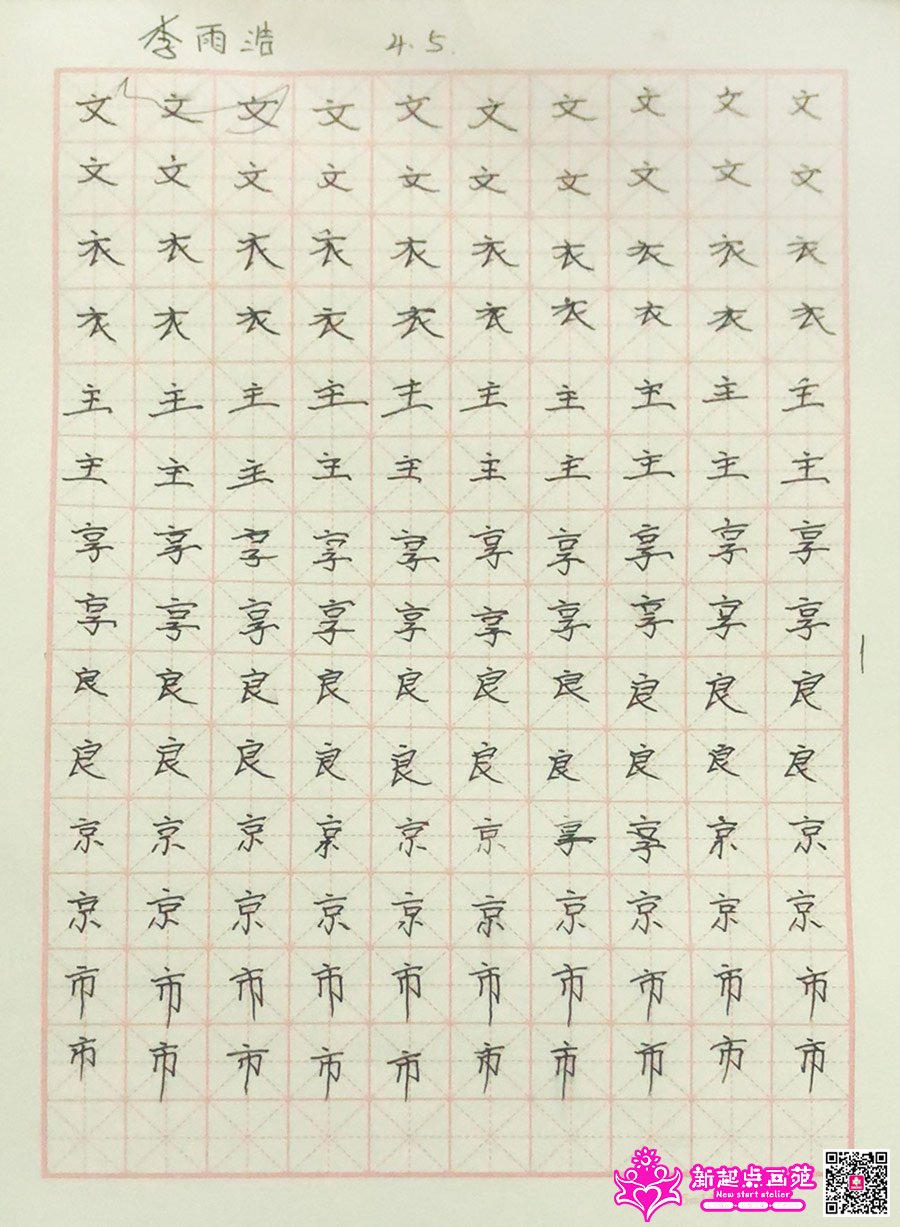 李雨浩 4.5.
文文文文文文文文文文
文文文文文文文文文文
衣衣衣衣衣衣衣衣衣衣
衣衣衣衣衣衣衣衣衣衣
主主主主主主主主主主
主主主主主主主主主主
享享享享享享享享享享
享享享享享享享享享享
良良良良良良良良良良
良良良良良良良良良良
京京京京京京享享京京
京京京京京京京京京京
市市市市市市市市市市
市市市市市市市市市市
新起点画苑
New start atelier